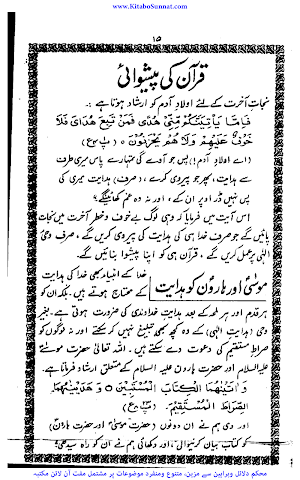 www.KitaboSunnat.com
۱۵
قرآن کی پیشوائی
نجاتِ آخرت کے لئے اولادِ آدم کو ارشاد ہوتا ہے :۔
فَاِمَّا يَاْتِيَنَّكُمْ مِّنِّيْ هُدًى فَمَنْ تَبِعَ هُدَايَ فَلَا
خَوْفٌ عَلَيْهِمْ وَلَا هُمْ يَحْزَنُوْنَ ○
(اے اولادِ آدم!) پس جو آدے گی تمہارے پاس میری طرف
سے ہدایت، پھر جو پیروی کرے (صرف) ہدایت میری کی
پس نہیں ڈر اوپر ان کے، اور نہ وہ غم کھائینگے؟
اس آیت میں فرمایا کہ وہی لوگ بے خوف وخطر آخرت میں نجات
پائیں گے جو صرف خدا ہی کی ہدایت کی پیروی کریں گے، صرف وحی
الٰہی پر عمل کریں گے، قرآن ہی کو اپنا پیشوا بنائیں گے
موسیٰؑ اور ہارونؑ کو ہدایت
خدا کے انبیاء بھی خدا کی ہدایت
کے محتاج ہوتے ہیں۔ بلکہ ان کو
ہر قدم اور ہر لمحہ کے بعد ہدایت خداوندی کی ضرورت ہوتی ہے۔ بغیر
وحی (ہدایت الٰہی) کے وہ کچھ بھی تبلیغ نہیں کر سکتے اور نہ لوگوں کو
صراطِ مستقیم کی دعوت دے سکتے ہیں۔ اللہ تعالیٰ حضرت موسیٰ
علیہ السلام اور حضرت ہارون علیہ السلام کے متعلق ارشاد فرماتا ہے۔
وَاٰتَيْنٰهُمَا الْكِتَابَ الْمُسْتَبِيْنَ ○ وَهَدَيْنٰهُمَا
الصِّرَاطَ الْمُسْتَقِيْمَ ○
اور دی ہم نے ان دونوں (حضرت موسیٰؑ اور حضرت ہارونؑ)
کو کتاب بیان کرنیوالی، اور دکھائی ہم نے ان کو راہ سیدھی؟
محکم دلائل وبراہین سے مزین، متنوع ومنفرد موضوعات پر مشتمل مفت آن لائن مکتبہ